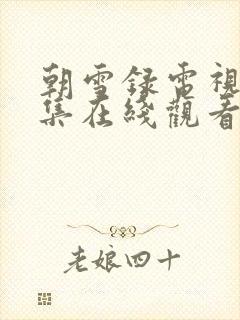 朝雪録電視
集在綫觀看
老娘四十